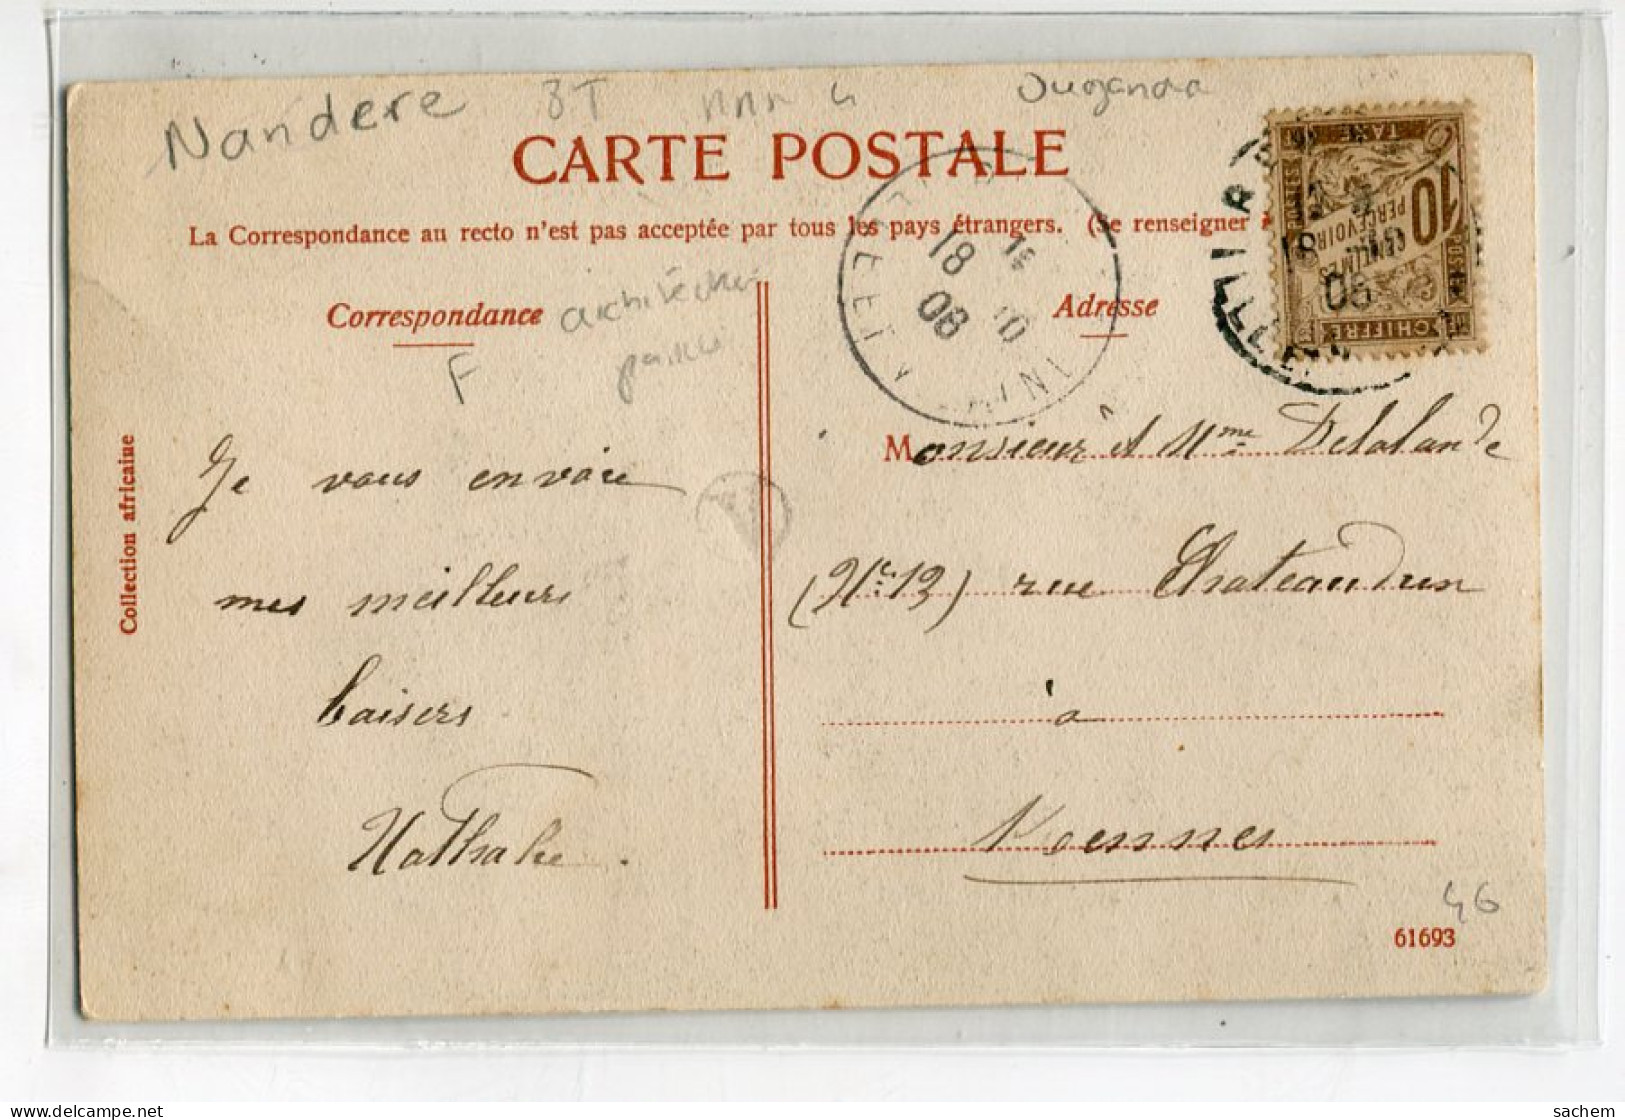 Nandere 3T Ouganda
CARTE POSTALE
La Correspondance au recto n'est pas acceptée par tous les pays étrangers. (Se renseigner
Correspondance
Adresse
architecture
F
paillée
18 10
06
TAXE
10
CENTIMES
À PERCEVOIR
POSTES
CHIFFRE
18
06
Collection africaine
Je vous envoie
mes meilleurs
baisers
Nathalie.
Monsieur et Mme Delalande
(No 13) rue Chateaudun
à
Rennes
46
61693
delcampe.net
sachem